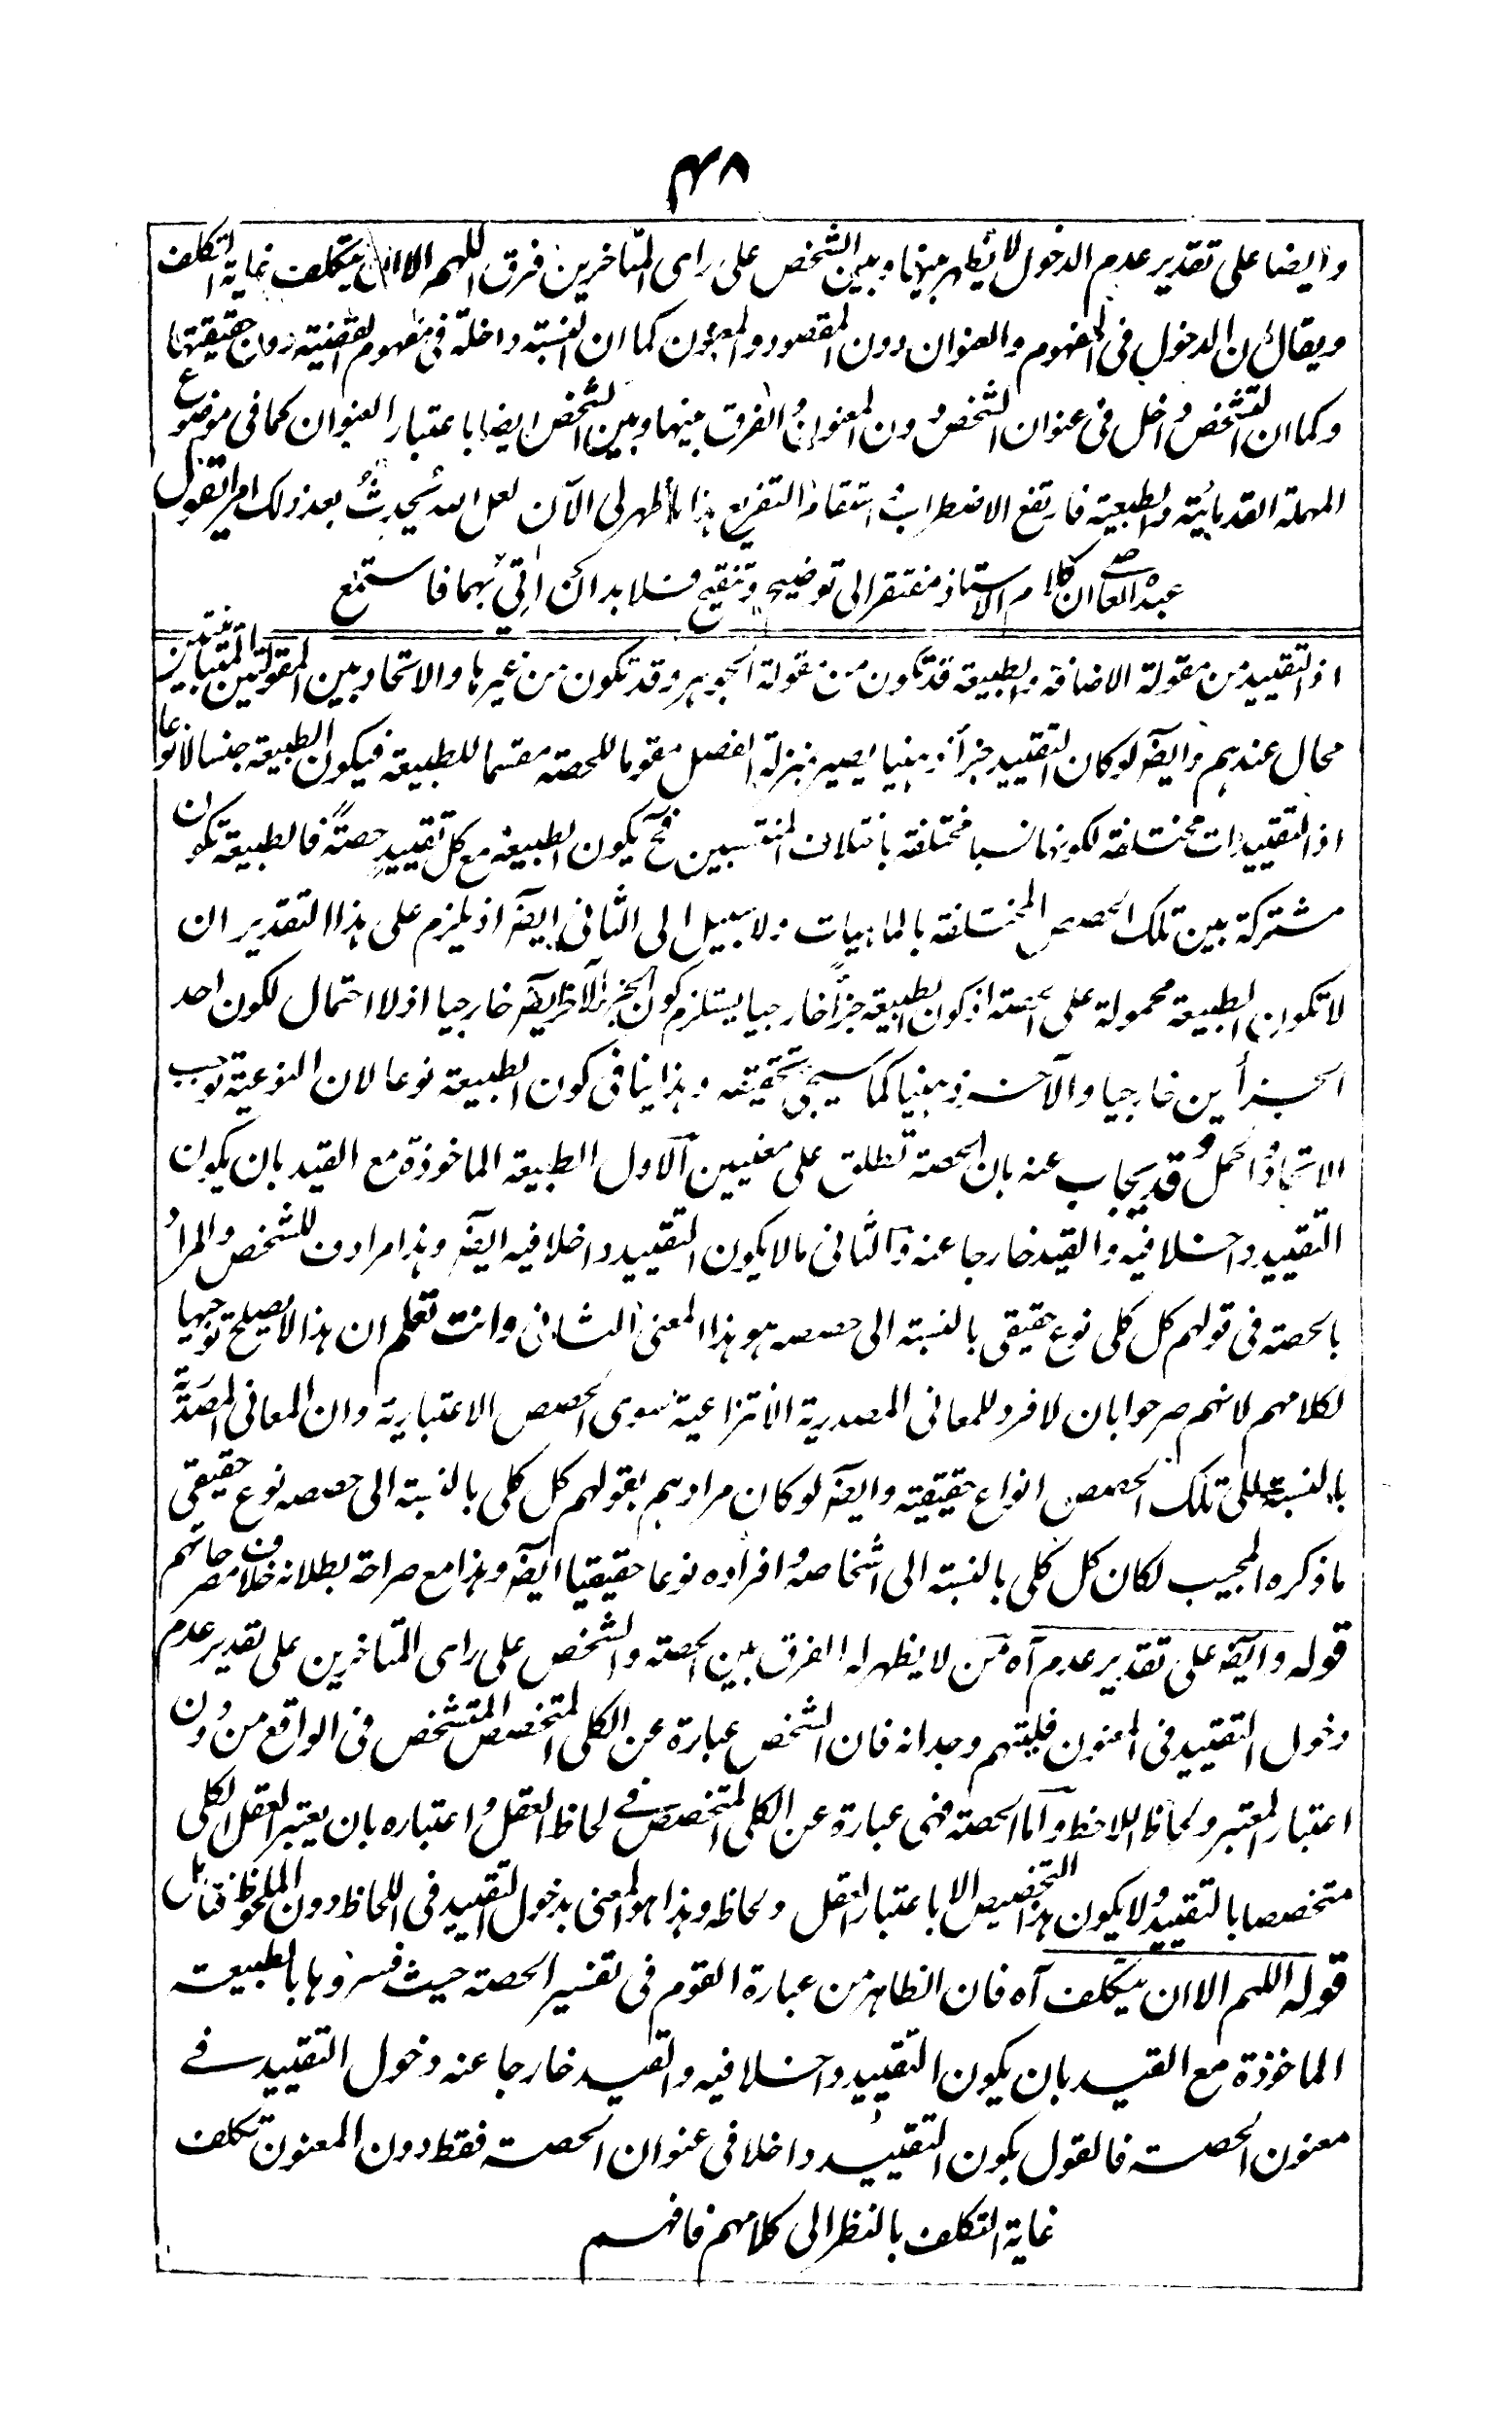 ٤٨
وايضا على تقدير عدم الدخول لا يظهر بينها وبين الشخص على راى المتاخرين فرق اللهم الا ان يتكلف غاية التكلف
ويقال ان الدخول فى المفهوم والعنوان دون المقصود والمعنون كما ان النسبة داخلة فى مفهوم القضية دون حقيقتها
وكما ان التشخص داخل فى عنوان الشخص دون المعنون والفرق بينها وبين الشخص ايضا باعتبار العنوان كما فى موضوع
المهملة القدمائية والطبعية فارتفع الاضطراب استقام التفريع هذا ما ظهر لى الآن لعل الله يحدث بعد ذلك امرا يقول
عبده العاصى ان كلام الاستاذ مفتقر الى توضيح وتنقيح فلا بد ان آتى بهما فاستمع
اذ التقييد من مقولة الاضافة والطبيعة قد تكون من مقولة الجوهر وقد تكون من غيرها والاتحاد بين المقولتين المتباينتين
محال عندهم وايضً لو كان التقييد جزأ ذهنيا يصير بمنزلة الفصل مقوما للحصته مقسما للطبيعة فيكون الطبيعة جنسا لانواعا
اذ التقييدات مختلفة لكونها نسبا مختلفة باختلاف المنتسبين فح يكون الطبيعة مع كل تقييدٍ حصتةً فالطبيعة تكون
مشتركة بين تلك الحصص المختلفة بالماهيات ولا سبيل الى الثانى ايضً اذ يلزم على هذا التقدير ان
لا تكون الطبيعة محمولة على الحصته اذ كون الطبيعة جزأً خارجيا يستلزم كون الجزء الآخر ايضً خارجيا اذ لا احتمال لكون احد
الجزأين خارجيا والآخر ذهنيا كما سيجئ تحقيقه وهذا ينافى كون الطبيعة نوعا لان النوعية توجب
الاتحاد والحمل وقد يجاب عنه بان الحصته تطلق على معنيين الآول الطبيعة الماخوذة مع القيد بان يكون
التقييد داخلا فيه والقيد خارجا عنه والثانى ما لا يكون التقييد داخلا فيه ايضً وهذا مرادف للشخص والمراد
بالحصته فى قولهم كل كلى نوع حقيقى بالنسبة الى حصصه هو هذا المعنى الثانى وانت تعلم ان هذا لا يصلح توجيها
لكلامهم لانهم صرحوا بان لا فرد للمعانى المصدرية الانتزاعية سوى الحصص الاعتبارية وان المعانى المصدرية
بالنسبة الى تلك الحصص انواع حقيقية وايضً لو كان مرادهم بقولهم كل كلى بالنسبة الى حصصه نوع حقيقى
ما ذكره المجيب لكان كل كلى بالنسبة الى اشخاصه وافراده نوعا حقيقيا ايضً وهذا مع صراحة بطلانه خلاف مصرحاتهم
قوله وايضً على تقدير عدم آه من لا يظهر له الفرق بين الحصته والشخص على راى المتاخرين على تقدير عدم
دخول التقييد فى المعنون فليتهم وجدانه فان الشخص عبارة عن الكلى المتخصص المتشخص فى الواقع من دون
اعتبار المعتبر ولحاظ اللاحظ واما الحصته فهى عبارة عن الكلى المتخصص فى لحاظ العقل واعتباره بان يعتبر العقل الكلى
متخصصا بالتقييد ولا يكون هذا التخصيص الا باعتبار العقل ولحاظه وهذا هو المعنى بدخول التقييد فى اللحاظ دون الملحوظ فتامل
قوله اللهم الا ان يتكلف آه فان الظاهر من عبارة القوم فى تفسير الحصته حيث فسروها بالطبيعة
الماخوذة مع القيد بان يكون التقييد داخلا فيه والقيد خارجا عنه دخول التقييد فى
معنون الحصته فالقول بكون التقييد داخلا فى عنوان الحصته فقط دون المعنون تكلف
غاية التكلف بالنظر الى كلامهم فافهم